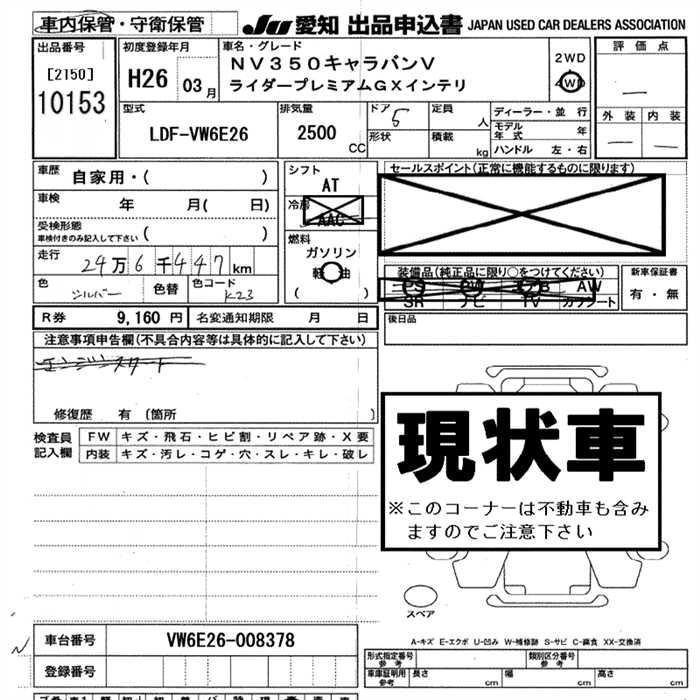 車内保管・守衛保管 JU 愛知 出品申込書 JAPAN USED CAR DEALERS ASSOCIATION
出品番号 初度登録年月 車名・グレード 評価点
[2150] H26 03月 NV350キャラバンV 2WD
10153 ライダープレミアムGXインテリ 4WD
型式 排気量 ドア 定員 ディーラー・並行 外装 内装
LDF-VW6E26 2500 CC 5 人 モデル年式 年
形状 積載 kg ハンドル 左・右
車歴 自家用・( ) シフト セールスポイント(正常に機能するものに限ります)
AT
車検 年 月( 日) 冷房
AAC
受検形態
車検付きのみ記入して下さい ( ) 燃料
ガソリン
走行 24万6千447km 軽油 装備品(純正品に限り○をつけてください) 新車保証書
( ) PS PW AW 有・無
色 シルバー 色替 色コード K23 SR ナビ TV カワシート
R券 9,160円 名変通知期限 月 日 後日品
注意事項申告欄(不具合内容等は具体的に記入して下さい)
エンジンスタート
修復歴 有 〔箇所 〕
検査員 FW キズ・飛石・ヒビ割・リペア跡・X要
記入欄 内装 キズ・汚レ・コゲ・穴・スレ・キレ・破レ
現状車
※このコーナーは不動車も含み
ますのでご注意下さい
スペア
A-キズ E-エクボ U-凹み W-補修跡 S-サビ C-腐食 XX-交換済
車台番号 VW6E26-008378 形式指定番号 参考 類別区分番号 参考
登録番号 車庫証明用 参考 長さ cm 幅 cm 高さ cm